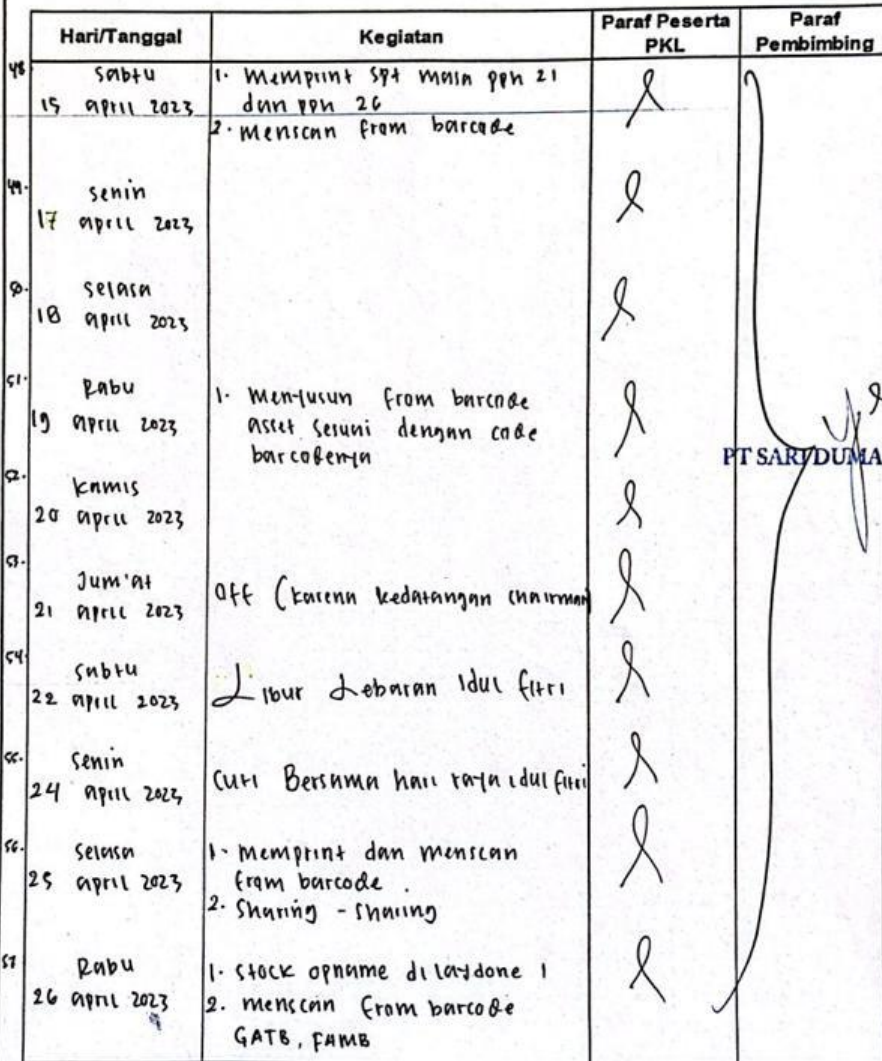 Hari/Tanggal Kegiatan Paraf Peserta PKL Paraf Pembimbing
48. Sabtu
15 april 2023
1. Memprint spt masa pph 21
dan pph 26
2. Menscan from barcode
49. Senin
17 april 2023
50. Selasa
18 april 2023
51. Rabu
19 april 2023
1. Menyusun from barcode
asset sesuai dengan code
barcodenya
PT SARI DUMA
52. Kamis
20 april 2023
53. Jum'at
21 april 2023
Off (karena kedatangan chairman
54. Sabtu
22 april 2023
Libur Lebaran Idul fitri
55. Senin
24 april 2023
Cuti Bersama hari raya idul fitri
56. Selasa
25 april 2023
1. Memprint dan menscan
from barcode
2. Sharing - sharing
57. Rabu
26 april 2023
1. Stock opname di laydone 1
2. menscan from barcode
GATB, FAMB